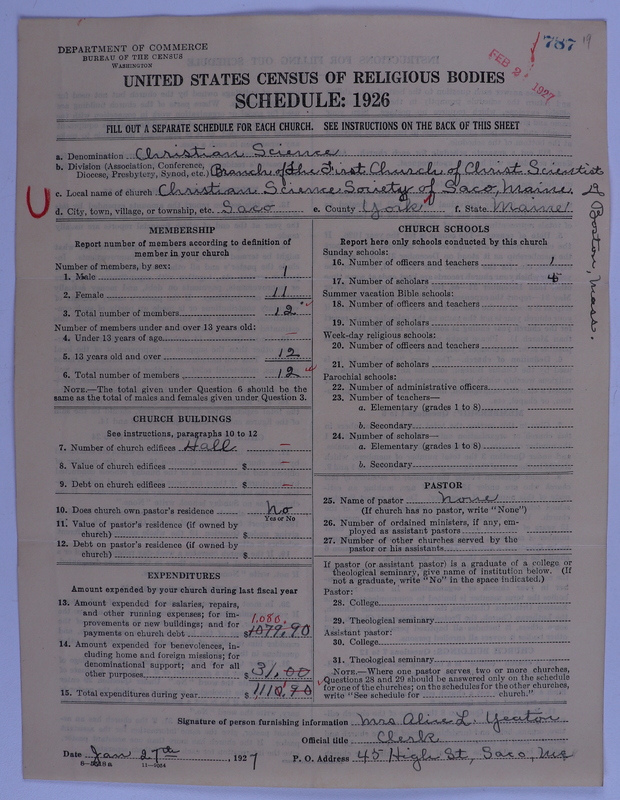 787
19
FEB 2 1927
DEPARTMENT OF COMMERCE
BUREAU OF THE CENSUS
WASHINGTON
UNITED STATES CENSUS OF RELIGIOUS BODIES
SCHEDULE: 1926
FILL OUT A SEPARATE SCHEDULE FOR EACH CHURCH. SEE INSTRUCTIONS ON THE BACK OF THIS SHEET
a. Denomination Christian Science
b. Division (Association, Conference, Diocese, Presbytery, Synod, etc.) Branch of the First Church of Christ Scientist
of Boston, Mass.
c. Local name of church Christian Science Society of Saco, Maine.
d. City, town, village, or township, etc. Saco e. County York f. State Maine
MEMBERSHIP
Report number of members according to definition of
member in your church
Number of members, by sex:
1. Male 1
2. Female 11
3. Total number of members 12
Number of members under and over 13 years old:
4. Under 13 years of age —
5. 13 years old and over 12
6. Total number of members 12
NOTE.—The total given under Question 6 should be the
same as the total of males and females given under Question 3.
CHURCH BUILDINGS
See instructions, paragraphs 10 to 12
7. Number of church edifices Hall —
8. Value of church edifices $ —
9. Debt on church edifices $ —
10. Does church own pastor's residence No
Yes or No
11. Value of pastor's residence (if owned by
church) $
12. Debt on pastor's residence (if owned by
church) $
EXPENDITURES
Amount expended by your church during last fiscal year
13. Amount expended for salaries, repairs,
and other running expenses; for im-
provements or new buildings; and for 1,080.
payments on church debt $1079.90
14. Amount expended for benevolences, in-
cluding home and foreign missions; for
denominational support; and for all
other purposes $ 31.00
15. Total expenditures during year $1110.90
CHURCH SCHOOLS
Report here only schools conducted by this church
Sunday schools:
16. Number of officers and teachers 1
17. Number of scholars
Summer vacation Bible schools:
18. Number of officers and teachers
19. Number of scholars
Week-day religious schools:
20. Number of officers and teachers
21. Number of scholars
Parochial schools:
22. Number of administrative officers
23. Number of teachers—
a. Elementary (grades 1 to 8)
b. Secondary
24. Number of scholars—
a. Elementary (grades 1 to 8)
b. Secondary
PASTOR
25. Name of pastor None
(If church has no pastor, write "None")
26. Number of ordained ministers, if any, em-
ployed as assistant pastors
27. Number of other churches served by the
pastor or his assistants
If pastor (or assistant pastor) is a graduate of a college or
theological seminary, give name of institution below. (If
not a graduate, write "No" in the space indicated.)
Pastor:
28. College
29. Theological seminary
Assistant pastor:
30. College
31. Theological seminary
NOTE.—Where one pastor serves two or more churches,
Questions 28 and 29 should be answered only on the schedule
for one of the churches; on the schedules for the other churches,
write "See schedule for church."
Signature of person furnishing information Mrs Aline L. Yeaton
Official title Clerk
Date Jan 27th, 1927 P. O. Address 45 High St, Saco, Me